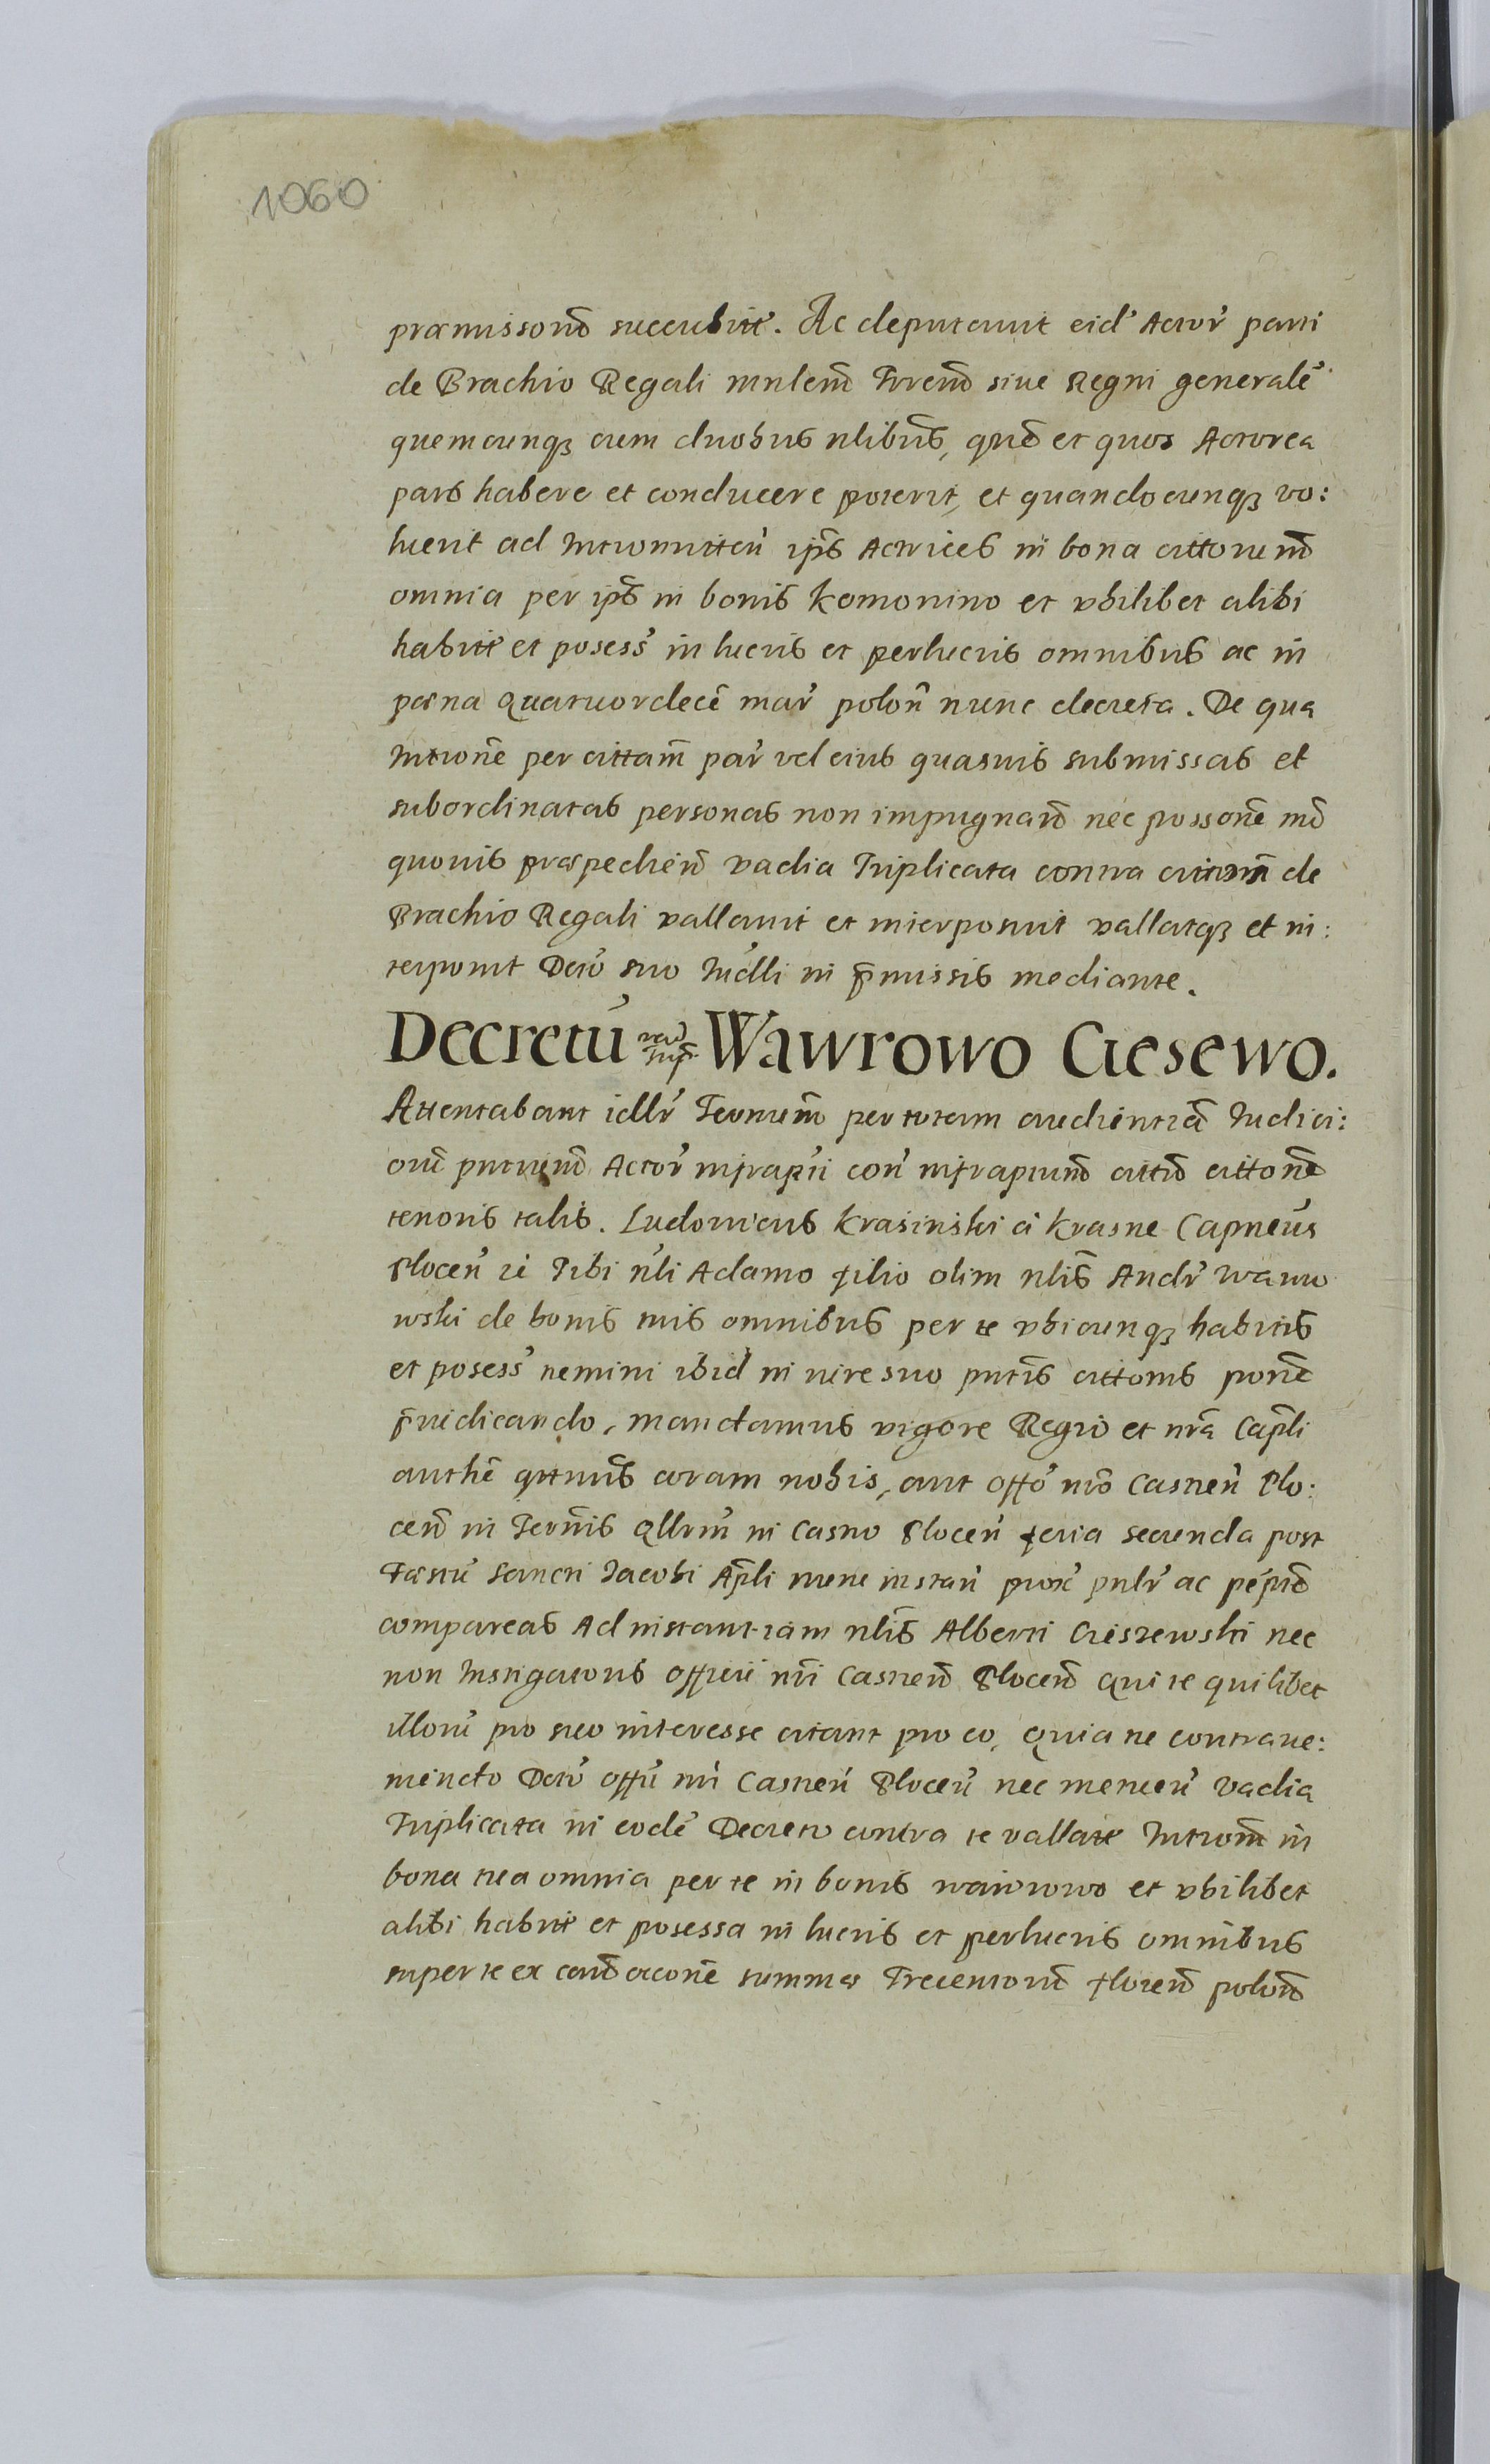 1060
præmissorũ succubite. Ac deputavit eid' Actor' parti
de Brachio Regali mnlem̃ Trrem̃ sive Regni generalẽ
quemcunqȝ cum duobus nlibus̃, quẽ et quos Actorea
pars habere et conducere poterit, et quandocunqȝ vo:
luerit ad Intromitten' ip̃s Actrices in bona cittorum̃
omnia per ip̃s in bonis Komonino et vbilibet alibi
habite et posess' in lucris et perlucris omnibus ac in
pœna Quatuordecẽ mar' polon̄ nunc decreta. De qua
Intrõne per cittam̃ par' vel eius quasvis submissas et
subordinatas personas non impugnan̄d nec possonẽ
quovis præpedien̄d vadia Triplicata contra de
Brachio Regali vallavit et interposuit vallatqȝ et in:
terponit Dctõ suo Iudlli in p̄missis mediante.
Decretũ Wawrowo Ciesewo.
Attentabant idllr' Termum̃ per totam audientiã Iudici:
orũ Actor' infrap̃ti con' cittonẽ
tenoris talis. Ludovicus Krasinski á Krasne Capneus
Plocen' zc̃ Tibi n̄li Adamo filio olim nlis̃ Andr' Wawro
wski de bonis tuis omnibus per te vbicunqȝ habitis
et posess' nemini ibid' in iure suo pntis̃ cittonis ponẽ
p̄iudicando, mandamus vigore Regiõ et nrã Cap̃li
authẽ qttnus̃ coram nobis, aut offõ nrõ Castren' Plo:
cen̄d in Termis̃ Qllrm' in Castro Plocen' feria secunda post
Fæstũ Sancti Jacobi Ap̃li nunc instan' prox' pnlr' ac
compareas Ad instantiam nlis̃ Alberti Cieszewski nec
non Instigatoris Officii nr̃i Castren̄d Plocen̄d Qui te quilibet
illorũ pro suo interesse citant pro eo, Quia tu contrave:
niendo Dctõ offũ nr̃i Castren' Plocen' nec metuen' vadia
Triplicata in eodẽ Decreto contra te vallate Intrõm̃ in
bona tua omnia per te in bonis Wawrowo et vbilibet
alibi habite et posessa in lucris et perlucris omnibus
super te ex cond̃ccõnẽ summæ Trecentorũ florem̃ polon̄d